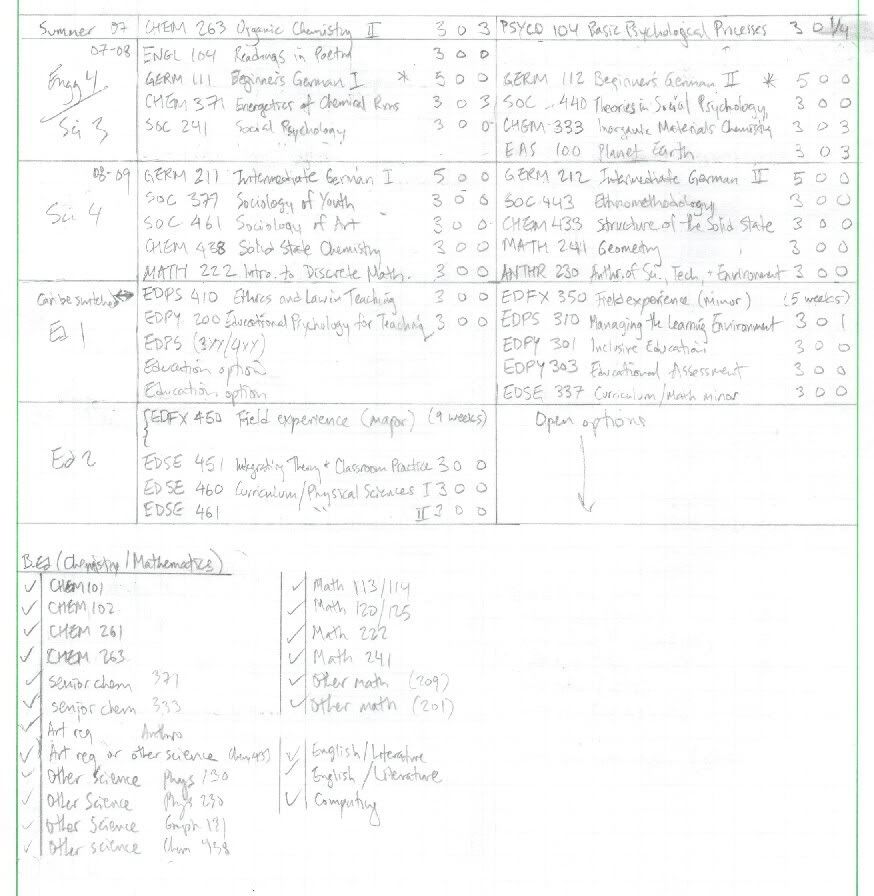 Summer 07 CHEM 263 Organic Chemistry II 3 0 3 PSYCO 104 Basic Psychological Processes 3 0 1/4
07-08 ENGL 104 Readings in Poetry 3 0 0
Engg 4 GERM 111 Beginner's German I * 5 0 0 GERM 112 Beginner's German II * 5 0 0
CHEM 371 Energetics of Chemical Rxns 3 0 3 SOC 440 Theories in Social Psychology 3 0 0
Sci 3 SOC 241 Social Psychology 3 0 0 CHEM 333 Inorganic Materials Chemistry 3 0 3
EAS 100 Planet Earth 3 0 3
08-09 GERM 211 Intermediate German I 5 0 0 GERM 212 Intermediate German II 5 0 0
Sci 4 SOC 377 Sociology of Youth 3 0 0 SOC 443 Ethnomethodology 3 0 0
SOC 461 Sociology of Art 3 0 0 CHEM 433 Structure of the Solid State 3 0 0
CHEM 438 Solid State Chemistry 3 0 0 MATH 241 Geometry 3 0 0
MATH 222 Intro. to Discrete Math. 3 0 0 ANTHR 230 Anthr. of Sci., Tech, + Environment 3 0 0
Can be switched ↔ EDPS 410 Ethics and Law in Teaching 3 0 0 EDFX 350 Field experience (minor) (5 weeks)
Ed 1 EDPY 200 Educational Psychology for Teaching 3 0 0 EDPS 310 Managing the Learning Environment 3 0 1
EDPS (3xx/4xx) EDPY 301 Inclusive Education 3 0 0
Education option EDPY 303 Educational Assessment 3 0 0
Education option EDSE 337 Curriculum/Math minor 3 0 0
EDFX 450 Field experience (major) (9 weeks) Open options
Ed 2 EDSE 451 Integrating Theory + Classroom Practice 3 0 0
EDSE 460 Curriculum/Physical Sciences I 3 0 0
EDSE 461 " II 3 0 0
B.Ed (Chemistry/Mathematics)
✓ CHEM 101 ✓ Math 113/114
✓ CHEM 102 ✓ Math 120/125
✓ CHEM 261 ✓ Math 222
✓ CHEM 263 ✓ Math 241
✓ senior chem 371 ✓ Other math (209)
✓ senior chem 333 ✓ Other math (201)
✓ Art req Anthro
✓ Art req or other science ✓ English/Literature
✓ Other Science Phys 130 ✓ English/Literature
✓ Other Science Phys 230 ✓ Computing
✓ Other Science 131
✓ Other science Chem 438